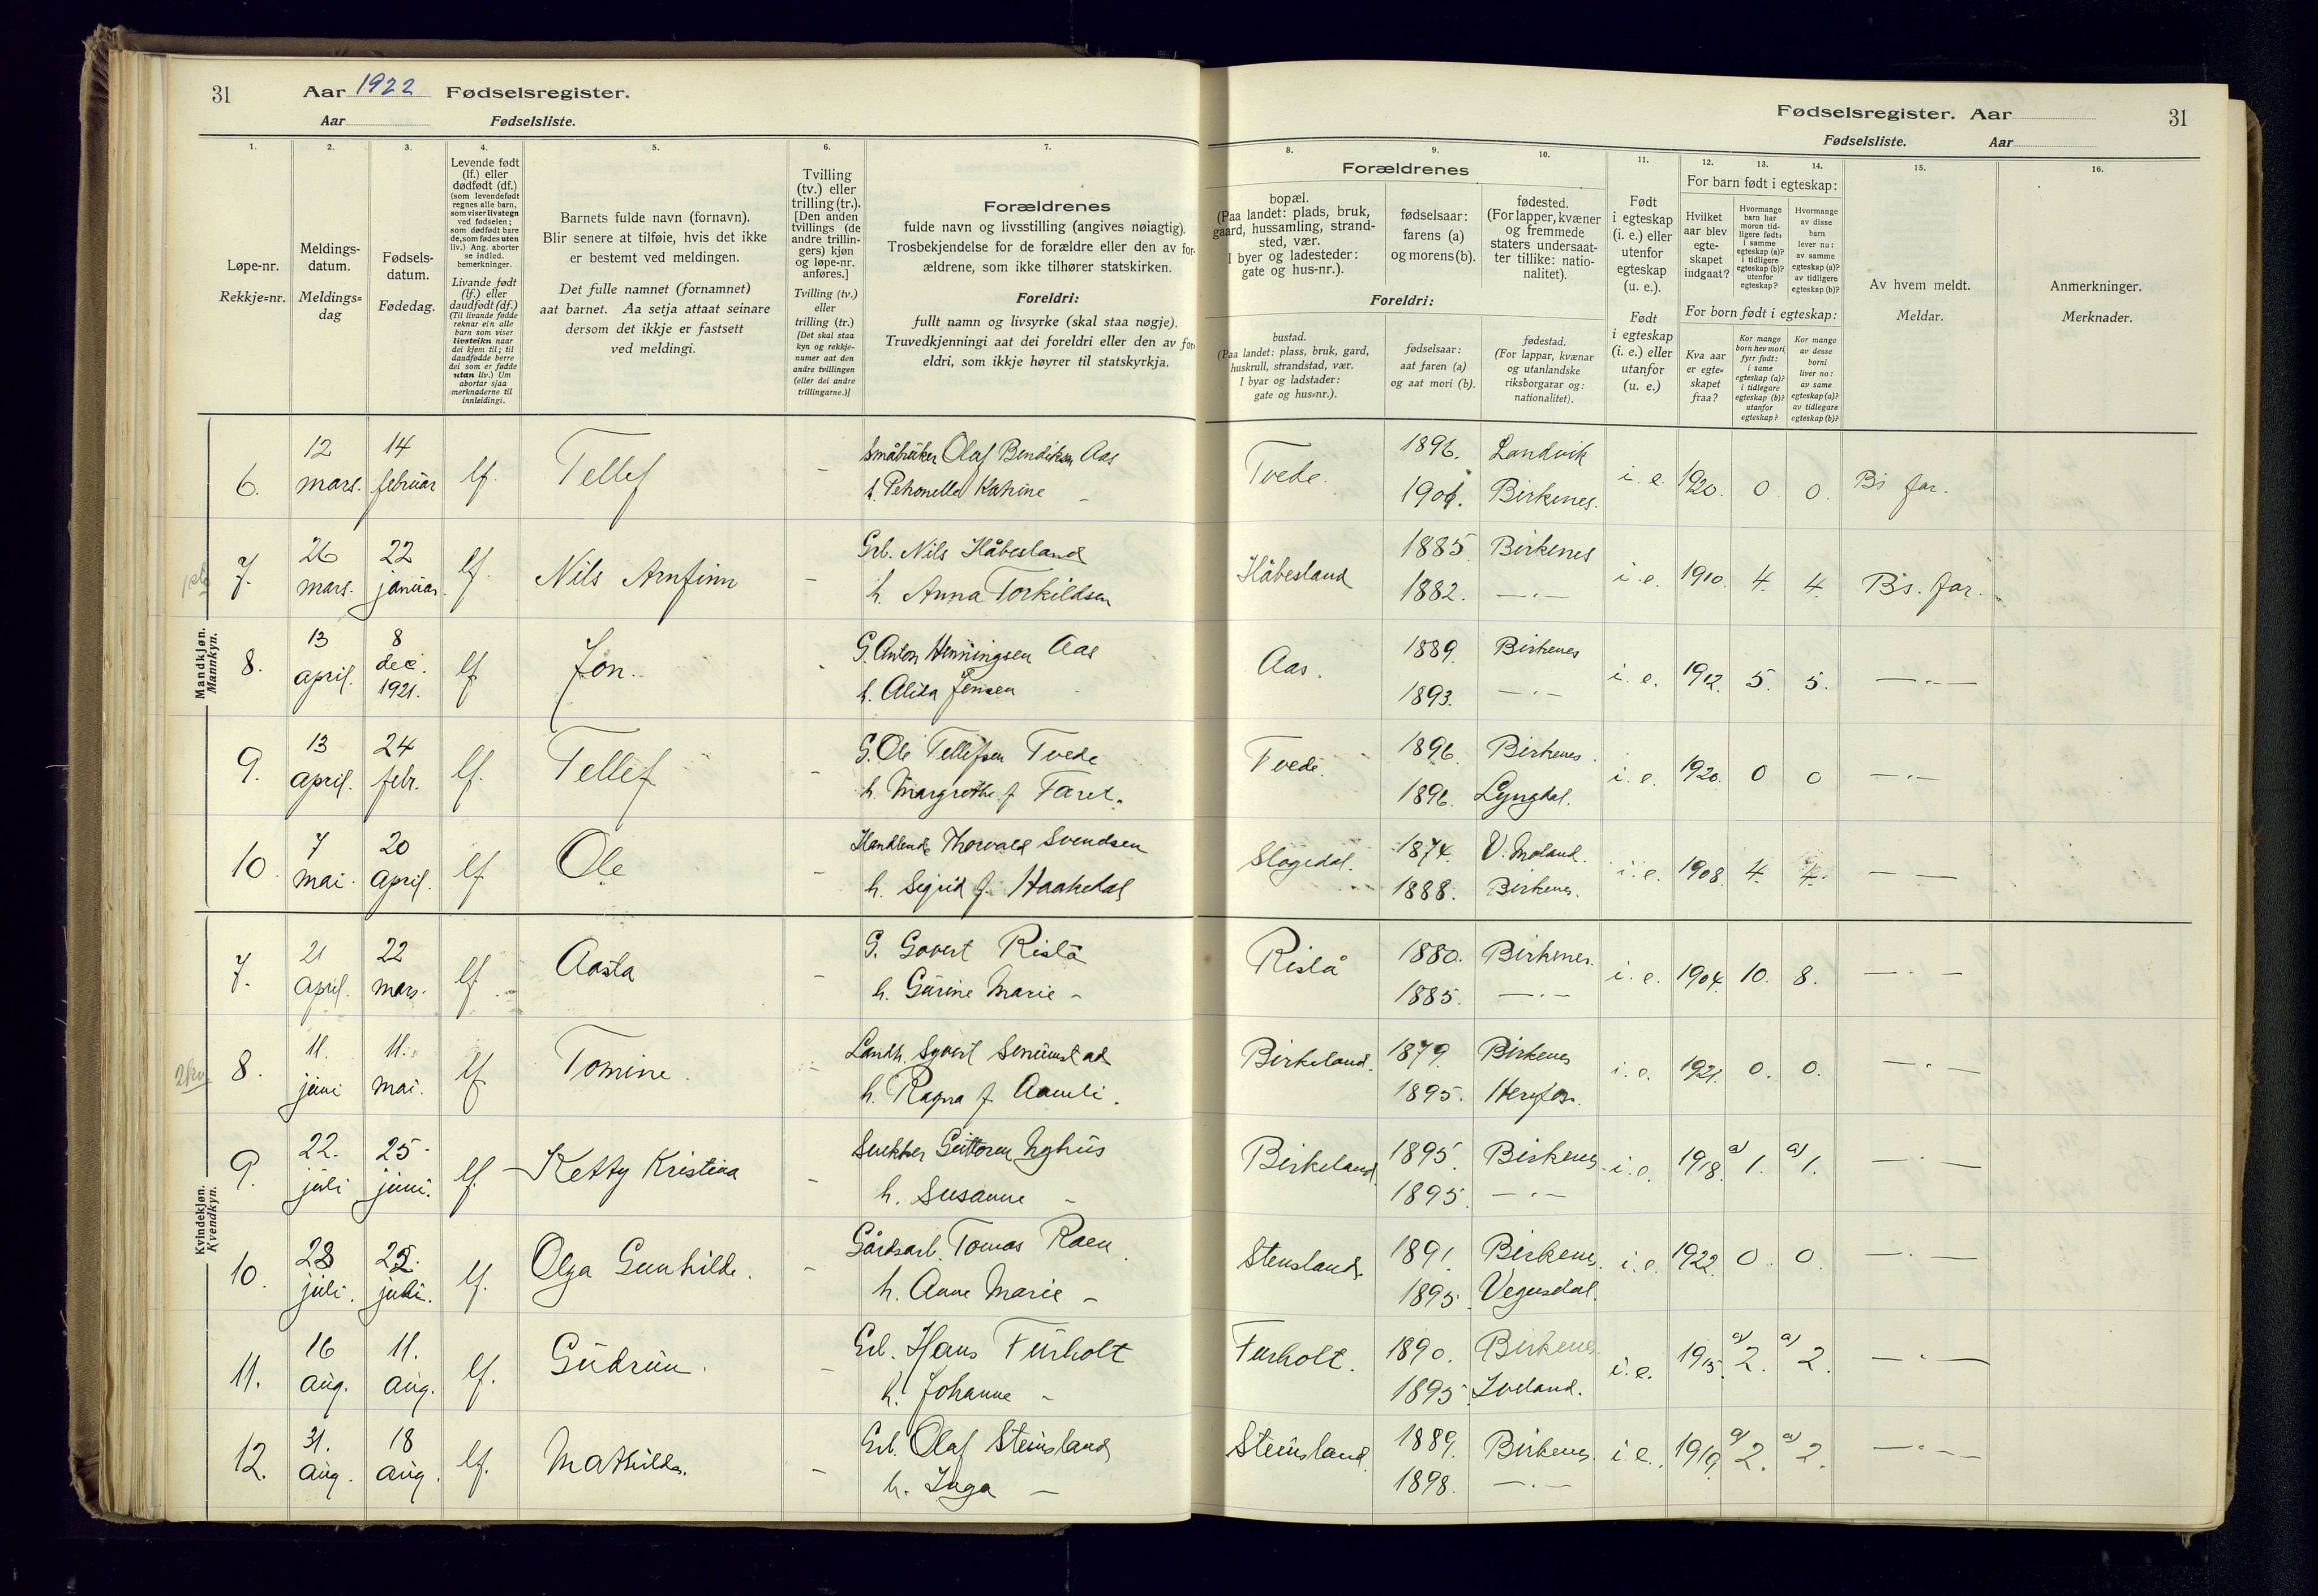 31
Aar 1922 Fødselsregister.
Aar Fødselsliste.
1.
2.
3.
4.
5.
6.
7.
Løpe-nr.
Rekkje=nr.
Meldings-
datum.
Meldings=
dag
Fødsels-
datum.
Fødedag.
Levende født
(lf.) eller
dødfødt (df.)
(som levendefødt
regnes alle barn,
som viser livstegn
ved fødselen;
som dødfødt bare
de, som fødes uten
liv.) Ang. aborter
se indled.
bemerkninger.
Livande født
(lf.) eller
daudfødt (df.)
(Til livande fødde
reknar ein alle
barn som viser
livsteikn naar
dei kjem til; til
daudfødde berre
dei som er fødde
utan liv.) Um
abortar sjaa
merknaderne til
innleidingi.
Barnets fulde navn (fornavn).
Blir senere at tilføie, hvis det ikke
er bestemt ved meldingen.
Det fulle namnet (fornamnet)
aat barnet. Aa setja attaat seinare
dersom det ikkje er fastsett
ved meldingi.
Tvilling
(tv.) eller
trilling (tr.).
[Den anden
tvillings (de
andre trillin-
gers) kjøn
og løpe-nr.
anføres.]
Tvilling (tv.)
eller
trilling (tr.)
[Det skal staa
kyn og rekkje-
numer aat den
andre tvillingen
(eller dei andre
trillingarne.)]
Forældrenes
fulde navn og livsstilling (angives nøiagtig).
Trosbekjendelse for de forældre eller den av for-
ældrene, som ikke tilhører statskirken.
Foreldri:
fullt namn og livsyrke (skal staa nøgje).
Truvedkjenningi aat dei foreldri eller den av for-
eldri, som ikkje høyrer til statskyrkja.
Mandkjøn.
Mannkyn.
6. 12 mars. 14 februar lf. Tellef – Småbruker Olaf Bendiksen Aas
h. Petronella Katrine –
7. 26 mars. 22 januar. lf. Nils Arnfinn – Grb. Nils Håbesland
h. Anna Torkildsen
8. 13 april. 8 dec. 1921. lf Jon. G. Anton Henningsen Aas
h. Alida Jensen
9. 13 april. 24 febr. lf. Tellef – G. Ole Tellefsen Tvede
h. Margrethe f Faret.
10. 7 mai. 20 April. lf Ole – Handlende Thorvald Svendsen
h. Sigrid f. Haakedal
Kvindekjøn.
Kvendkyn.
7. 21 April. 22 mars. lf. Aasta – G. Govert Rislå
h. Gurine Marie –
8. 11. juni 11. mai. lf Tomine. Landh. Syvert Senumstad
h. Ragna f Aamli.
9. 22. juli 25 juni. lf. Ketty Kristina – Snekker Guttorm Nyhus
h. Susanne –
10. 28 juli. 22. juli. lf. Olga Gunhilde. – Gårdsarb. Tomas Raen
h. Anne Marie –
11. 16 aug. 11. aug. lf. Gudrun. – Grb. Hans Furholt
h. Johanne –
12. 31. aug. 18 aug. lf. Mathilde. – Grb. Olaf Steinsland
h. Inga –
Fødselsregister. Aar
31
Fødselsliste. Aar
8.
9.
10.
11.
12.
13.
14.
15.
16.
Forældrenes
bopæl.
(Paa landet: plads, bruk,
gaard, hussamling, strand-
sted, vær.
I byer og ladesteder:
gate og hus-nr.).
fødselsaar:
farens (a)
og morens (b).
fødested.
(For lapper, kvæner
og fremmede
staters undersaat-
ter tillike: natio-
nalitet).
Foreldri:
bustad.
(Paa landet: plass, bruk, gard,
huskrull, strandstad, vær.
I byar og ladstader:
gate og hus=nr.).
fødselsaar:
aat faren (a)
og aat mori (b).
fødestad.
(For lappar, kvænar
og utanlandske
riksborgarar og:
nationalitet).
Født
i egteskap
(i. e.) eller
utenfor
egteskap
(u. e.).
Født
i egteskap
(i. e.) eller
utanfor
(u. e.)
For barn født i egteskap:
Hvilket
aar blev
egte-
skapet
indgaat?
Hvormange
barn har
moren tid-
ligere født:
i samme
egteskap (a)?
i tidligere
egteskap (b)?
utenfor
egteskap?
Hvormange
av disse
barn
lever nu:
av samme
egteskap (a)?
av tidligere
egteskap (b)?
For born født i egteskap:
Kva aar
er egte=
skapet
fraa?
Kor mange
born hev mori
fyrr født:
i same
egteskap (a)?
i tidlegare
egteskap (b)?
utanfor
egteskap?
Kor mange
av desse
borni
liver no:
av same
egteskap (a)?
av tidlegare
egteskap (b)?
Av hvem meldt.
Meldar.
Anmerkninger.
Merknader.
Tvede. 1896. Landvik i. e. 1920. 0. 0. Bs far.
1901. Birkenes.
Håbesland 1885 Birkenes i. e. 1910. 4. 4. Bs. far.
1882. —„—
Aas. 1889. Birkenes i. e. 1912. 5. 5. —„—
1893. —„—
Tvede. 1896. Birkenes i. e. 1920. 0 0 —„—
1896. Lyngdal.
Slogedal. 1874. V. Moland. i. e. 1908. 4. 4. — —
1888. Birkenes.
Rislå 1880. Birkenes. i. e. 1904. 10. 8. —„—
1885. —„—
Birkeland. 1879. Birkenes i. e. 1921. 0. 0. —„—
1895. Herefoss.
Birkeland 1895. Birkenes i. e. 1918. a) 1. a) 1. —„—
1895. —„—
Stensland. 1891. Birkenes. i. e. 1922. 0. 0. —„—
1895. Vegusdal.
Furholt. 1890. Birkenes i. e. 1915. a) 2. a) 2. —„—
1895 Iveland.
Steinsland. 1889. Birkenes. i. e. 1919. a) 2. a) 2. —„—
1898. —„—